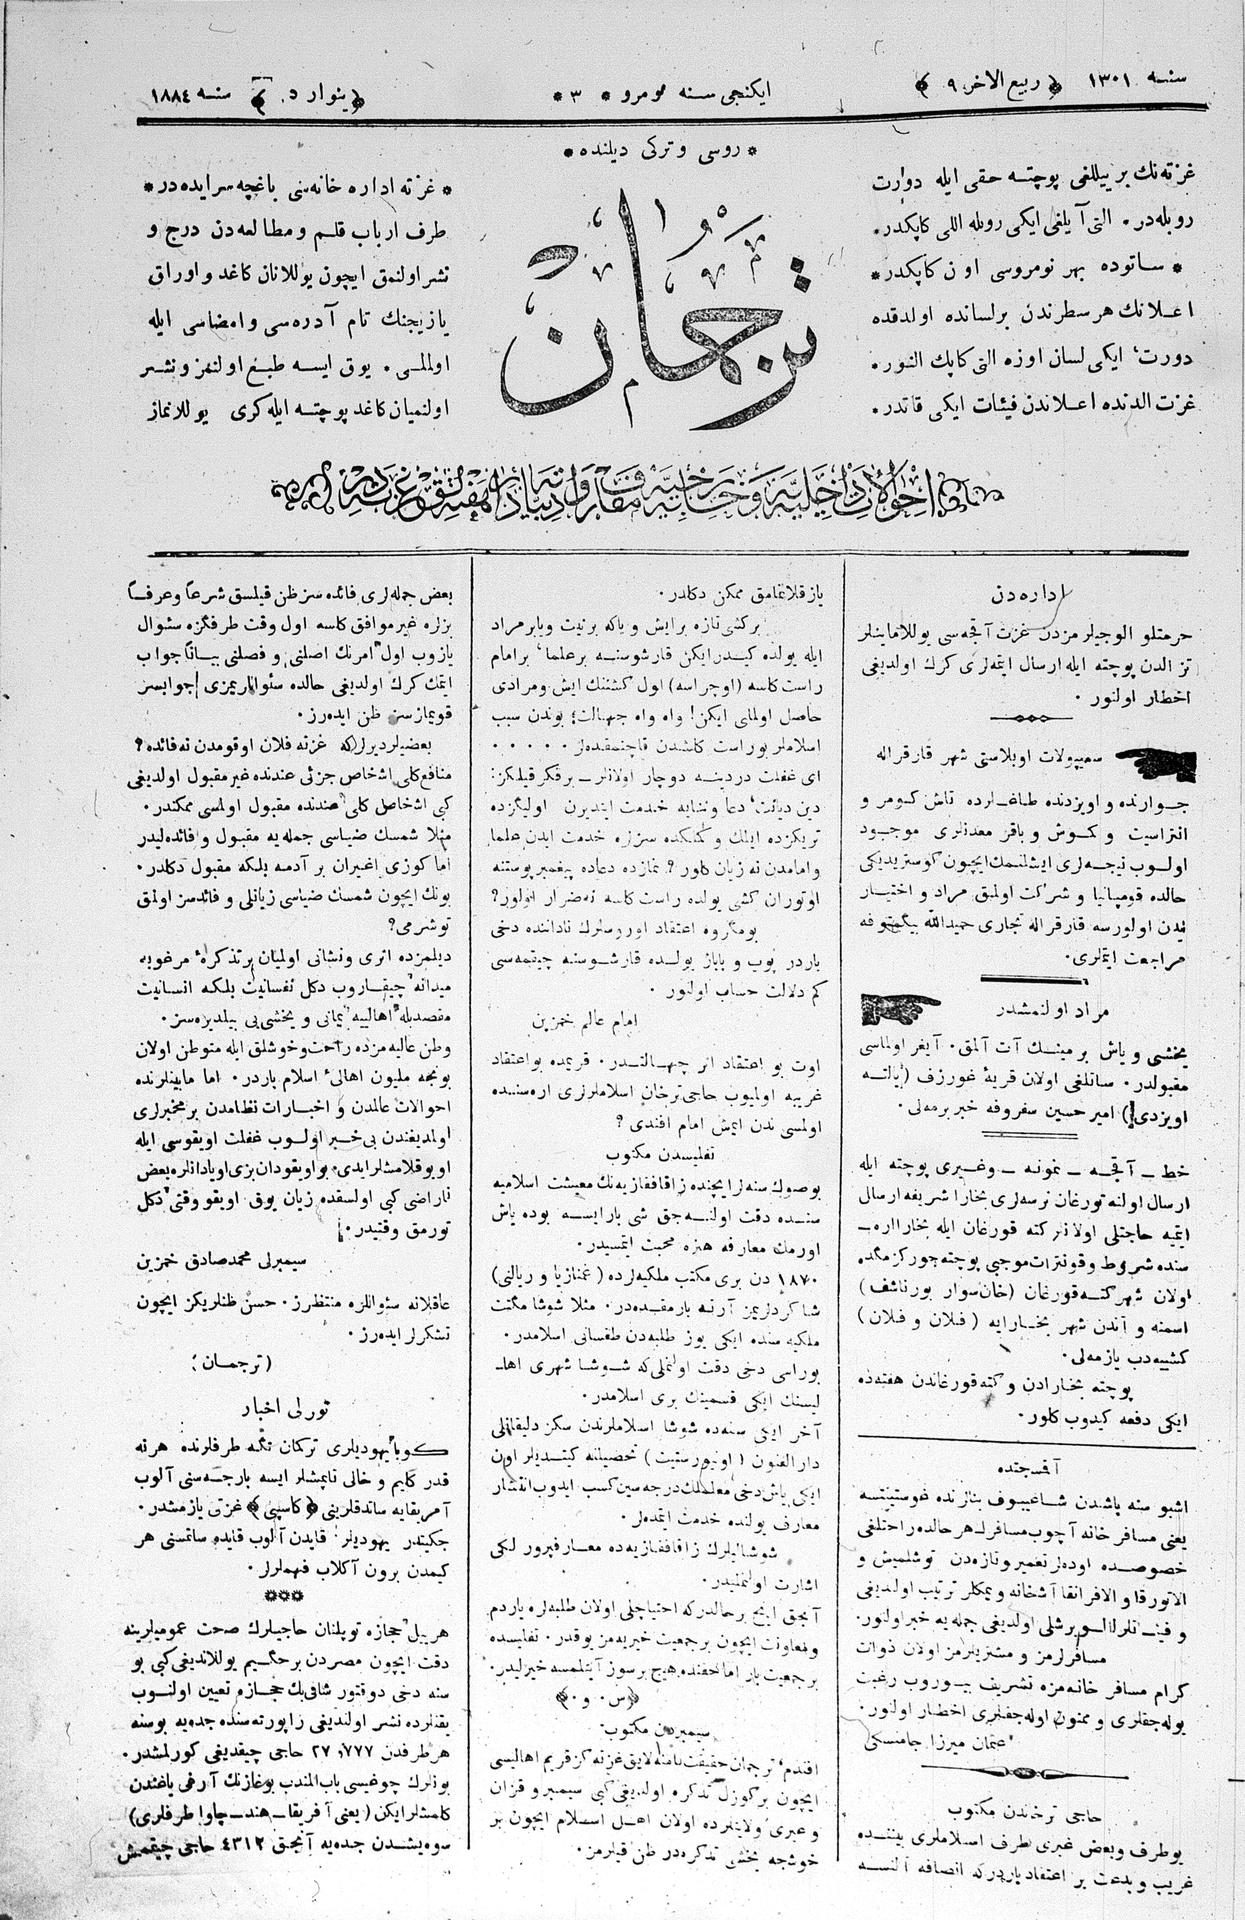 سنه ١٣٠١ ﴿ ربيع الاخر ٩ ﴾
ايكنجى سنه نومرو * ٣ *
﴿ ينوار د. ﴾ سنه ١٨٨٤
* روسى و تركى ديلنده *
غزته‌نك بر ييللغى پوچته حقى ايله دوارت
روبله‌در. التى آيلغى ايكى روبله اللى كاپكدر.
* ساتوده بهر نومروسى اون كاپكدر *
اعلانك هر سطرندن برلسانده اولدقده
دورت، ايكى لسان اوزه التى كاپك النور.
غزت الدنده اعلاندن فيئات ايكى قاتدر.
ترجمان
* غزته اداره خانه‌سى باغچه سرايده‌در *
طرف ارباب قلم و مطالعه‌دن درج و
نشر اولنمق ايچون يوللانان كاغد و اوراق
يازيجنك تام آدره‌سى و امضاسى ايله
اولملى. يوق ايسه طبع اولنمز و نشر
اولنميان كاغد پوچته ايله كرى يوللانماز
اداره‌دن
حرمتلو الوجيلرمزدن غزت آقچه‌سى يوللاماينلر
تز الدن پوچته ايله ارسال ايتمه‌لرى كرك اولديغى
اخطار اولنور.
سميپولات اوبلاستى شهر قارقراله
جوارنده و اويزدنده طاغلرده تاش كومر و
انتراسيت و كموش و باقر معدنلرى موجود
اولوب نيجه‌لرى ايشلنمك ايچون كوستريديكى
حالده قومپانيا و شركت اولمق مراد و اختيار
ايدن اولورسه قارقراله تجارى حميدالله بيكتوفه
مراجعت ايتملرى.
مراد اولنمشدر
يخشى و ياش بر مينك آت آلمق. آيغر اولماسى
مقبولدر. ساتلغى اولان قريۀ غورزف (يالته
اويزدى) امير حسين سفروفه خبر برمه‌لى.
خط ـ آقچه ـ نمونه ـ و غيرى پوچته ايله
ارسال اولنه تورغان نرسه‌لرى بخارا شريفه ارسال
ايتمه حاجتلى اولانلر كته قورغان ايله بخارا اره‌ـ
سنده شروط و قونترات موجبى پوچته جوركزمكده
اولان شهر كته قورغان (خان‌سوار بورناشف)
اسمنه و آندن شهر بخارايه (فلان و فلان)
كشييه‌دب يازمه‌لى.
پوچته بخارادن و كته قورغاندن هفته‌ده
ايكى دفعه كيدوب كلور.
آقمسجتده
اشبو سنه باشدن شاغيبوف بنالرنده غوستينتسه
يعنى مسافر خانه آچوب مسافرلر هر حالده راحتلغى
خصوصده اوده‌لر تعمير و تازه‌دن توشلميش و
الاتورقا و الافرانقا آشخانه و يمكلر ترتيب اولديغى
مسافرلرمز و مشتريلرمز اولان ذوات
كرام مسافر خانه‌مزه تشريف بيوروب رغبت
يوله جقلرى و ممنون اوله جقلرى اخطار اولنور.
عثمان ميرزا جامنسكى
حاجى ترخندن مكتوب
بو طرف و بعض غيرى طرف اسلاملرى بيننده
غريب و بدعت بر اعتقاد باردركه انصافه آلنسه
يازقلانمامق ممكن دكلدر.
بر كشى تازه بر ايش و ياكه بر نيت و يا بر مراد
ايله يولده كيدر ايكن قارشوسنه بر علما، بر امام
راست كلسه (اوچراسه) اول كشتنك ايش و مرادى
حاصل اولماى ايكن! واه واه جهالت؛ بوندن سبب
اسلاملر بو راست كلشدن قاچنمقده‌لر . . . . .
اى غفلت دردينه دوچار اولانلر ـ بر فكر قيلكز:
دين ديانت، دعا و ثنايه خدمت ايتديرن اوليكزده
تريكزده ايلك و كتكده سزره خدمت ايدن علما
و امامدن نه زيان كلور؟ نمازده دعاده پيغمبر پوستنه
اوتوران كشى يولده راست كلسه نه ضرار اولور؟
بومكروه اعتقاد اوروسلرك نادانندە دخى
باردر پوپ و باباز يولده قارشوسنه چيقمه‌سى
كم دلالت حساب اولنور.
امام عالم خمزين
اوت بو اعتقاد اثر جهالتدر. قريمده بو اعتقاد
غريبه اولميوب حاجى ترخان اسلاملرى اره‌سنده
اولمسى ندن ايمش امام افندى؟
تفليسدن مكتوب
بو صوك سنه‌لر ايچنده زاقافقازيه‌نك معيشت اسلاميه
سنده دقت اولنه‌جق شى بار ايسه بوده ياش
اورمك معارفه هنره محبت ايتمسيدر.
١٨٧٠ دن برى مكتب ملكيه‌لرده (غمنازيا و ريالنى)
شاكردلريمز آرته بارمقده‌در. مثلا شوشا مكتب
ملكيه سنده ايكى يوز طلبه‌دن طقسانى اسلامدر.
بوراسى دخى دقت اولنملى‌كه شوشا شهرى اهاـ
ليسنك ايكى قسمينك برى اسلامدر.
آخر ايكى سنه‌ده شوشا اسلاملرندن سكز دليقانلى
دار الفنون (اونيورستيت) تحصيلنه كيتديلر اون
ايكى ياش دخى معلملك درجه سين كسب ايدوب انتشار
معارف يولنده خدمت ايتمده‌لر.
شوشاليلرك زاقافقازيه‌ده معارفپرورلكى
اشارت اولنمليدر.
آنجق اينج بر حالدركه احتياجلى اولان طلبه‌لره ياردم
و معاونت ايچون بر جمعيت خيريه‌مز يوقدر. تفليسده
بر جمعيت بار اما حقنده هيچ بر سوز آيتلمسه خيرليدر.
﴿س. و.﴾
سيمبردن مكتوب
افندم، ترجمان حقيقت نامنه لايق غزته‌كز قريم اهاليسى
ايچون بر كوزل تذكره اولديغى كبى سيمبر و قزان
و غيرى ولايتلرده اولان اهل اسلام ايچون بر
خوشجه يخشى تذكره‌در ظن قيلرمز.
بعض جمله‌لرى فائده سز ظن قيلسق شرعاً و عرفاً
بزلره غير موافق كلسه اول وقت طرفكزه سئوال
يازوب اول امرنك اصلنى و فصلنى بياناً جواب
ايتمك كرك اولديغى حالده سئوالريمزى جوابسز
قويمازسز ظن ايده‌رز.
بعضيلر ديرلركه غزته فلان اوقومدن نه فائده؟
منافع كلى اشخاص جزئى عندنده غير مقبول اولديغى
كبى اشخاص كلى عندنده مقبول اولمسى ممكندر.
مثلا شمسك ضياسى جمله‌يه مقبول و فائده‌ليدر
اما كوزى اغيران بر آدمه بلكه مقبول دكلدر.
بونك ايچون شمسك ضياسى زيانلى و فائدسز اولمق
توشرمى؟
ديلمزده اثرى و نشانى اولميان بر تذكرۀ مرغوبه
ميدانه چيقاروب دكل نفسانيت بلكه انسانيت
مقصديله اهاليه يمانى و يخشى‌يى بيلديره‌سز.
وطن عاليه‌مزده راحت و خوشلق ايله متوطن اولان
بونجه مليون اهالئ اسلام باردر. اما مابينلرنده
احوالات عالمدن و اخبارات نظامدن بر مخبرلرى
اولمديغندن بى‌خبر اولوب غفلت اويقوسى ايله
اويوقلامشلر ايدى. بو اويقودان بزى اوياندانلره بعض
ناراضى كبى اولسقده زيان يوق اويقو وقتى دكل
تورمق وقتيدر.
سيمبرلى محمد صادق خمزين
عاقلانه سئواللره منتظرز. حسن ظنلريكز ايچون
تشكرلر ايده‌رز.
(ترجمان)
تورلى اخبار
كوبا يهوديلرى تركمان تكه طرفلرنده هر نه
قدر كليم و خالى تاپمشلر ايسه بارجه‌سنى آلوب
آمريقايه ساتدقلرينى ﴿كاسپى﴾ غزتى يازمشدر.
جكيتدر يهوديلر: قايدن آلوب قايده ساتمسنى هر
كيمدن برون آكلاب فهملرلر.
***
هر ييل حجازه توپلنان حاجيلرك صحت عموميلرينه
دقت ايچون مصردن بر حكيم يوللانديغى كبى بو
سنه دخى دوقتور شافى بك حجازه تعيين اولنوب
يقنلرده نشر اولنديغى راپورته‌سنده جده‌يه بو سنه
هر طرفدن ٢٧٫٧٧٧ حاجى چيقديغى كورلمشدر.
بونلرك چوغيسى باب المندب بوغازنك آرقى ياغندن
كلمشلر ايكن (يعنى آفريقا ـ هند ـ چاوا طرفلرى)
سوه‌يشدن جده‌يه آنجق ٤٣١٢ حاجى چيقمش